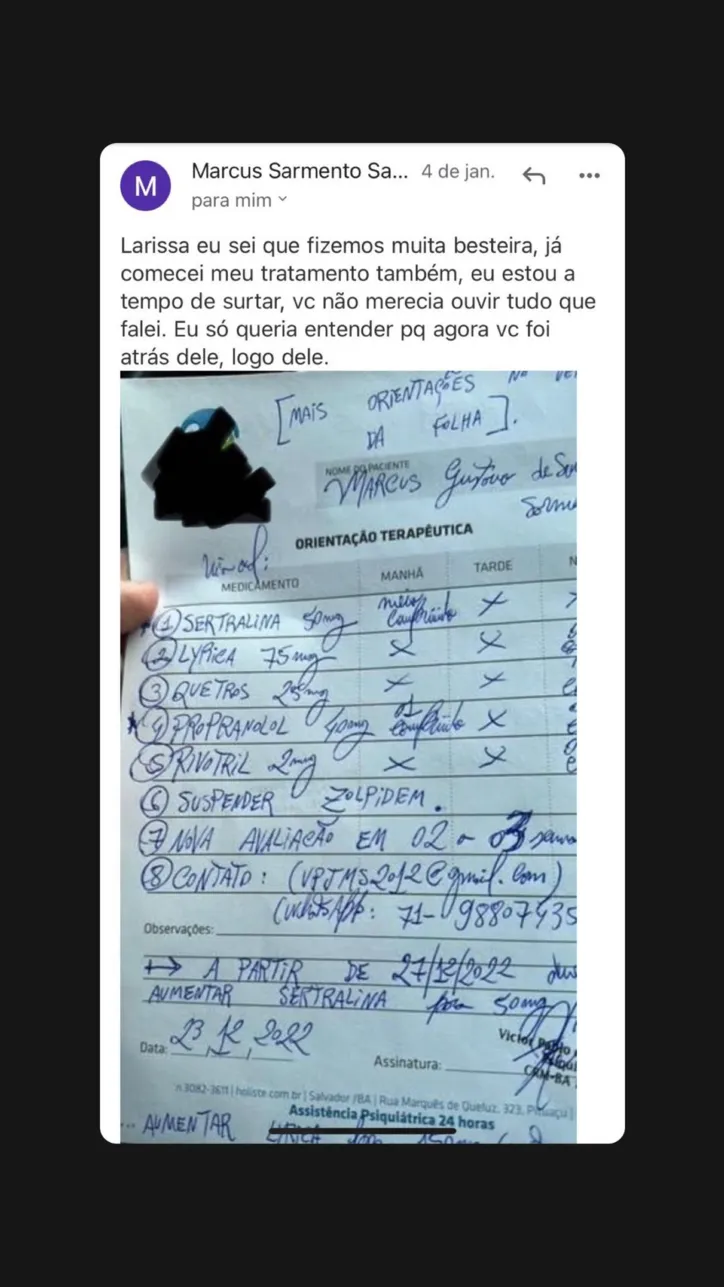 M
Marcus Sarmento Sa... 4 de jan.
para mim
Larissa eu sei que fizemos muita besteira, já
comecei meu tratamento também, eu estou a
tempo de surtar, vc não merecia ouvir tudo que
falei. Eu só queria entender pq agora vc foi
atrás dele, logo dele.
[MAIS ORIENTAÇÕES NO VE
DA FOLHA].
NOME DO PACIENTE
MARCUS Gustavo de
ORIENTAÇÃO TERAPÊUTICA
MEDICAMENTO MANHÃ TARDE N
① SERTRALINA 50mg meio comprimido X
② LYRICA 75mg X X
③ QUETROS 25mg X X
④ PROPRANOLOL 40mg 01 comprimido X
⑤ RIVOTRIL 2mg X X
⑥ SUSPENDER ZOLPIDEM.
⑦ NOVA AVALIAÇÃO EM 02 a 03
⑧ CONTATO: (VPJMS2012@gmail.com)
(WhatsApp: 71-98807435
Observações:
→ A PARTIR DE 27/12/2022
AUMENTAR SERTRALINA para 50mg
Data: 23, 12, 2022
Victor Pablo
Assinatura:
CRM-BA
3082-3611 | holiste.com.br | Salvador /BA | Rua Marquês de Queluz, 323, Pituaçu |
Assistência Psiquiátrica 24 horas
... AUMENTAR LYRICA para 150mg